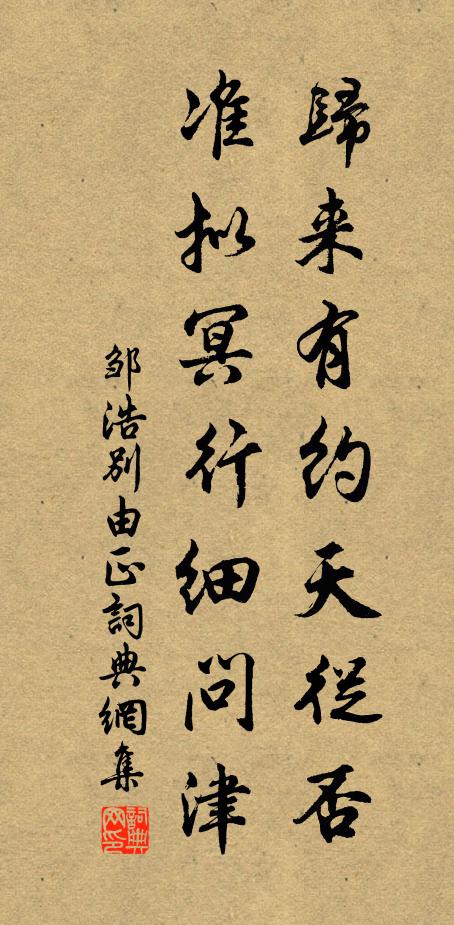 歸来有約天從否
准拟冥行细问津
邹浩别由正詞典網集
詞典網印